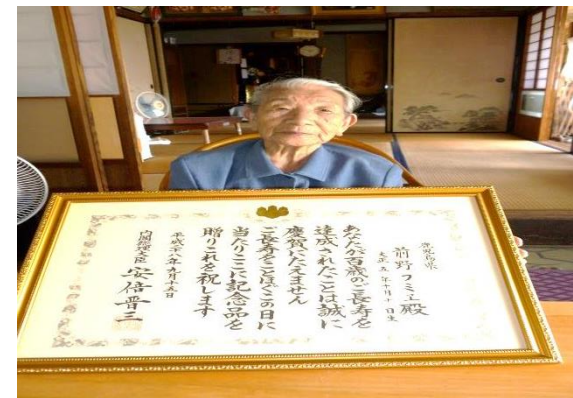 鹿児島県
前野フミエ殿
大正五年十月十日生
あなたが百歳のご長寿を
達成されたことは誠に
慶賀にたえません
ご長寿をことほぐこの日に
当たりここに記念品を
贈りこれを祝します
平成二十八年九月十五日
内閣総理大臣 安倍晋三